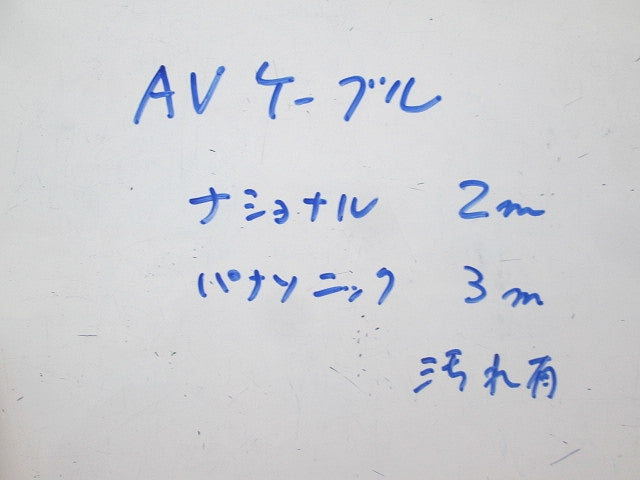 AVケーブル
ナショナル 2m
パナソニック 3m
汚れ有